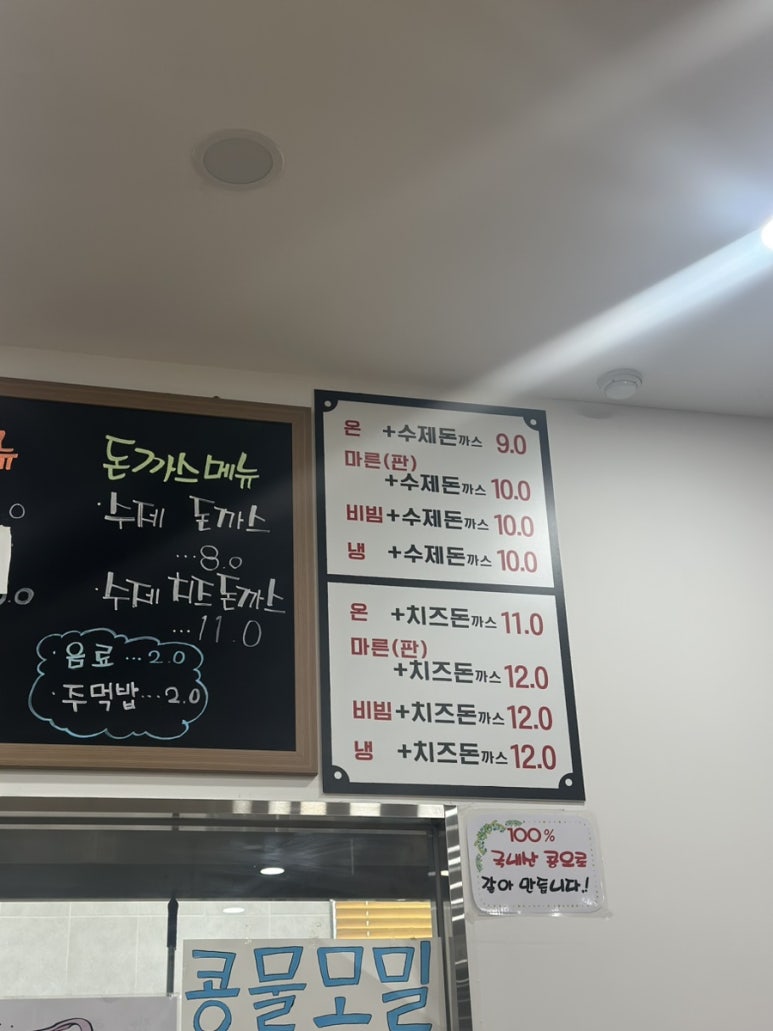 뉴
돈까스메뉴
· 수제 돈까스
...8.0
· 수제 치즈돈까스
...11.0
· 음료 ...2.0
· 주먹밥...2.0
온 +수제돈까스 9.0
마른(판)
+수제돈까스 10.0
비빔+수제돈까스 10.0
냉 +수제돈까스 10.0
온 +치즈돈까스 11.0
마른(판)
+치즈돈까스 12.0
비빔+치즈돈까스 12.0
냉 +치즈돈까스 12.0
100%
국내산 콩으로
갈아 만듭니다.!
콩물모밀